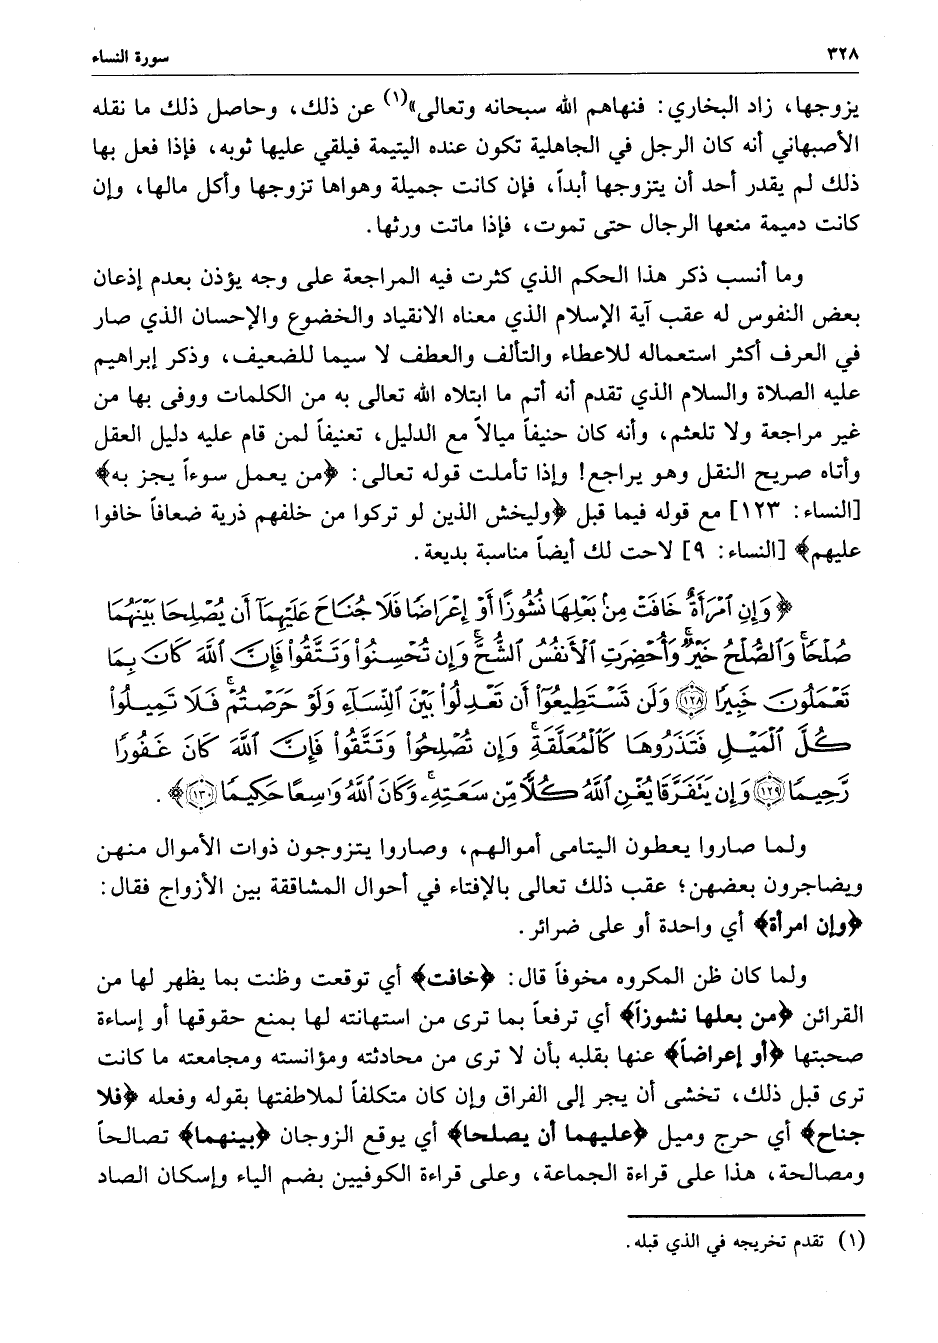 ٣٢٨ سورة النساء
يزوجها، زاد البخاري: فنهاهم الله سبحانه وتعالى»(١) عن ذلك، وحاصل ذلك ما نقله
الأصبهاني أنه كان الرجل في الجاهلية تكون عنده اليتيمة فيلقي عليها ثوبه، فإذا فعل بها
ذلك لم يقدر أحد أن يتزوجها أبداً، فإن كانت جميلة وهواها تزوجها وأكل مالها، وإن
كانت دميمة منعها الرجال حتى تموت، فإذا ماتت ورثها.
وما أنسب ذكر هذا الحكم الذي كثرت فيه المراجعة على وجه يؤذن بعدم إذعان
بعض النفوس له عقب آية الإسلام الذي معناه الانقياد والخضوع والإحسان الذي صار
في العرف أكثر استعماله للاعطاء والتألف والعطف لا سيما للضعيف، وذكر إبراهيم
عليه الصلاة والسلام الذي تقدم أنه أتم ما ابتلاه الله تعالى به من الكلمات ووفى بها من
غير مراجعة ولا تلعثم، وأنه كان حنيفاً ميالاً مع الدليل، تعنيفاً لمن قام عليه دليل العقل
وأتاه صريح النقل وهو يراجع! وإذا تأملت قوله تعالى: ﴿من يعمل سوءاً يجز به﴾
[النساء: ١٢٣] مع قوله فيما قبل ﴿وليخش الذين لو تركوا من خلفهم ذرية ضعافاً خافوا
عليهم﴾ [النساء: ٩] لاحت لك أيضاً مناسبة بديعة.
﴿وَإِنِ ٱمْرَأَةٌ خَافَتْ مِنۢ بَعْلِهَا نُشُوزًا أَوْ إِعْرَاضًا فَلَا جُنَاحَ عَلَيْهِمَآ أَن يُصْلِحَا بَيْنَهُمَا
صُلْحًا ۚ وَٱلصُّلْحُ خَيْرٌ ۗ وَأُحْضِرَتِ ٱلْأَنفُسُ ٱلشُّحَّ ۚ وَإِن تُحْسِنُوا۟ وَتَتَّقُوا۟ فَإِنَّ ٱللَّهَ كَانَ بِمَا
تَعْمَلُونَ خَبِيرًا ١٢٨ وَلَن تَسْتَطِيعُوٓا۟ أَن تَعْدِلُوا۟ بَيْنَ ٱلنِّسَآءِ وَلَوْ حَرَصْتُمْ ۖ فَلَا تَمِيلُوا۟
كُلَّ ٱلْمَيْلِ فَتَذَرُوهَا كَٱلْمُعَلَّقَةِ ۚ وَإِن تُصْلِحُوا۟ وَتَتَّقُوا۟ فَإِنَّ ٱللَّهَ كَانَ غَفُورًا
رَّحِيمًا ١٢٩ وَإِن يَتَفَرَّقَا يُغْنِ ٱللَّهُ كُلًّا مِّن سَعَتِهِۦ ۚ وَكَانَ ٱللَّهُ وَٰسِعًا حَكِيمًا ١٣٠﴾.
ولما صاروا يعطون اليتامى أموالهم، وصاروا يتزوجون ذوات الأموال منهن
ويضاجرون بعضهن؛ عقب ذلك تعالى بالإفتاء في أحوال المشاققة بين الأزواج فقال:
﴿وإن امرأة﴾ أي واحدة أو على ضرائر.
ولما كان ظن المكروه مخوفاً قال: ﴿خافت﴾ أي توقعت وظنت بما يظهر لها من
القرائن ﴿من بعلها نشوزاً﴾ أي ترفعاً بما ترى من استهانته لها بمنع حقوقها أو إساءة
صحبتها ﴿أو إعراضاً﴾ عنها بقلبه بأن لا ترى من محادثته ومؤانسته ومجامعته ما كانت
ترى قبل ذلك، تخشى أن يجر إلى الفراق وإن كان متكلفاً لملاطفتها بقوله وفعله ﴿فلا
جناح﴾ أي حرج وميل ﴿عليهما أن يصلحا﴾ أي يوقع الزوجان ﴿بينهما﴾ تصالحاً
ومصالحة، هذا على قراءة الجماعة، وعلى قراءة الكوفيين بضم الياء وإسكان الصاد
(١) تقدم تخريجه في الذي قبله.